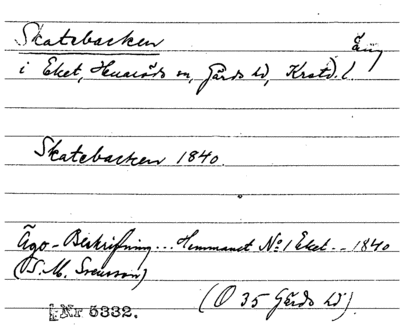 Skatebacken Äng
i Eket, Huaröds sn, Gärds hd, Krstd. l.
Skatebacken 1840.
Ägo-Beskrifning... Hemmanet No 1 Eket -- 1840
(S. M. Svensson)
(O 35 Gärds hd).
Nr 5332.